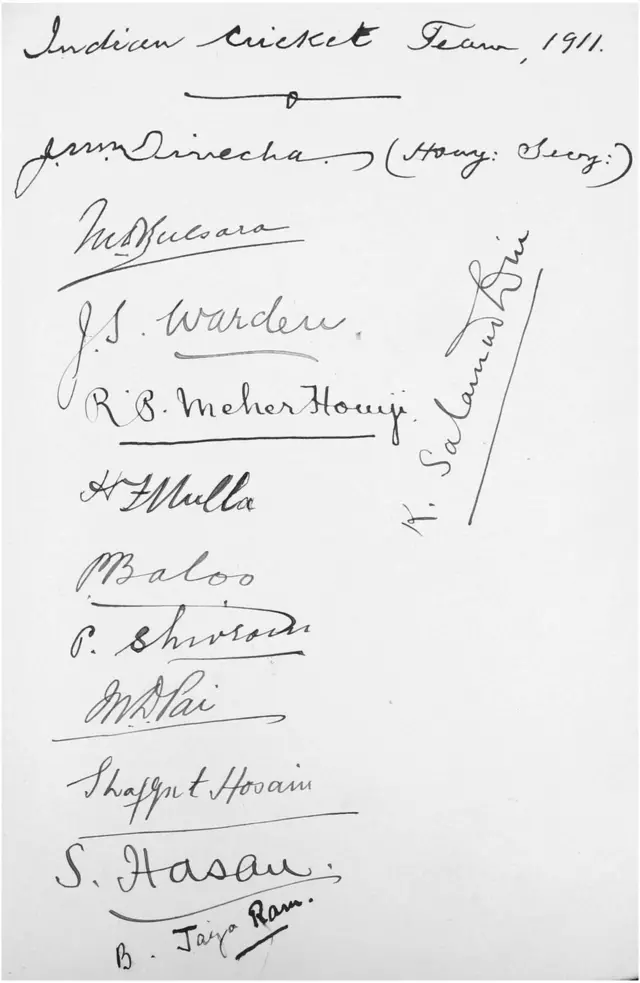 Indian Cricket Team, 1911.
J.M. Divecha. (Hony: Secy:)
M.D. Bulsara
J.S. Warden.
K. Salamuddin
R.P. Meher Homji.
H F Mulla
P. Baloo
P. Shivram
M.D. Pai
Shafqat Hosain
S. Hasan.
B. Jaya Ram.